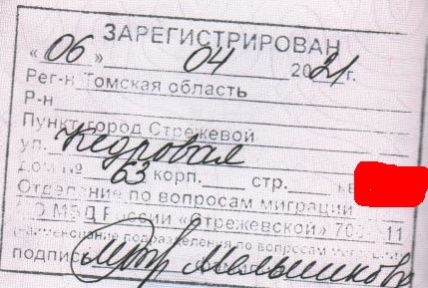 ЗАРЕГИСТРИРОВАН
«06» 04 2021г.
Рег-н Томская область
Р-н
Пункт город Стрежевой
ул. Кедровая
дом № 63 корп.____ стр.____ кв
Отделение по вопросам миграции
МО МВД России «Стрежевской» 70 11
наименование подразделения по вопросам миграции
подпись Мельникова